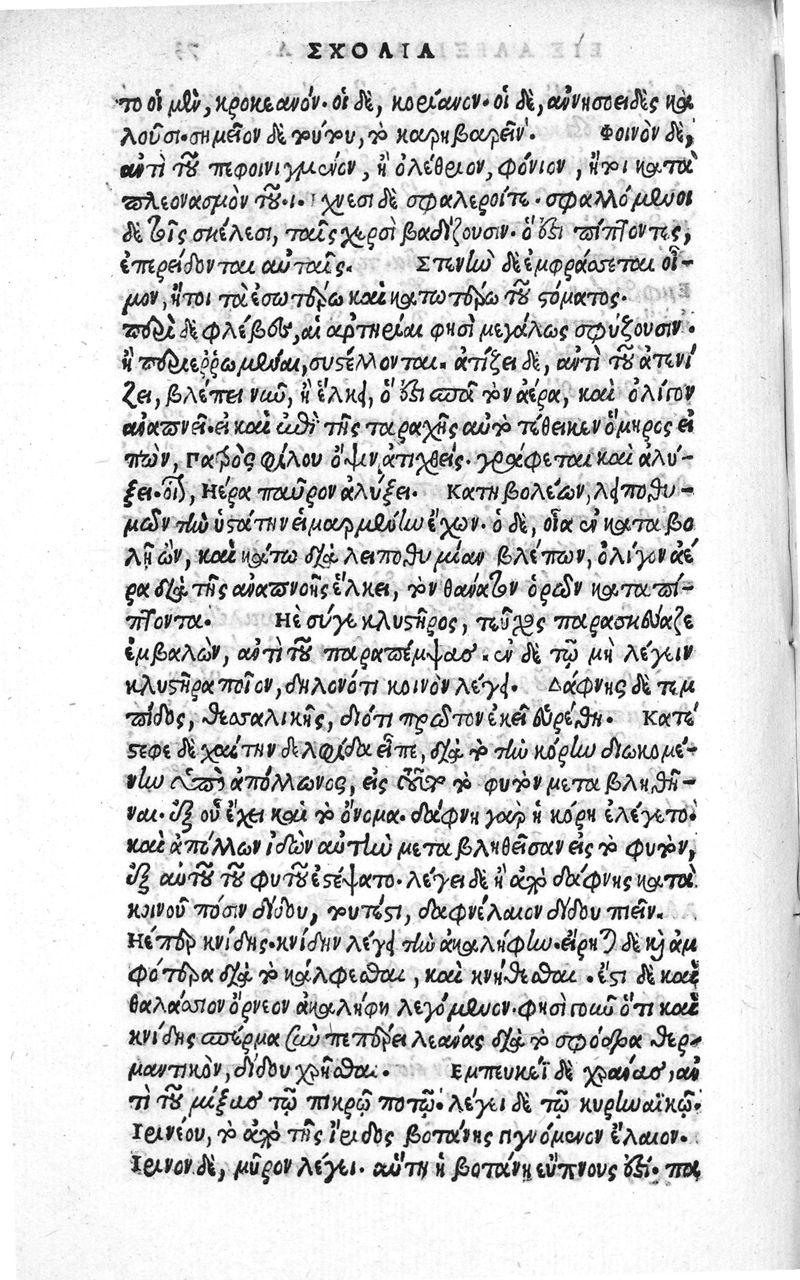 ΣΧΟΛΙΑ
το οἱ μὲν, κροκεανόν· οἱ δὲ, κοριάνον· οἱ δὲ, ἀννησοειδὲς κα
λοῦσι· σημεῖον δὲ τούτου, τὸ καρηβαρεῖν. Φοινὸν δὲ,
ἀντὶ τοῦ πεφοινιγμένον, ἢ ὀλέθριον, φόνιον, ἤτοι κατὰ
πλεονασμὸν τοῦ ·ι· ἴχνεσι δὲ σφαλεροῖτε· σφαλλόμενοι
δὲ τοῖς σκέλεσι, ταῖς χερσὶ βαδίζουσιν· ὅ ἐστι πίπτοντες,
ἐπερείδονται αὐταῖς. Στενὴν δὲ ἐμφράσσεται οἶ-
μον, ἤτοι τὰ ἐσωτέρω καὶ κατωτέρω τοῦ στόματος.
περὶ δὲ φλέβες, αἱ ἀρτηρίαι φησὶ μεγάλως σφύζουσιν·
ἢ περιερρωμέναι, συστέλλονται. ἀτίζει δὲ, ἀντὶ τοῦ ἀτενί
ζει, βλέπει νῦν, ἢ ἕλκει, ὅ ἐστι σπᾷ τὸν ἀέρα, καὶ ὀλίγον
ἀναπνεῖ· εἰ καὶ ἐπὶ τῆς ταραχῆς αὐτὸ τέθεικεν ὅμηρος εἰ
πὼν, Παρὸς φίλου ὄψιν ἀτιχθείς. γράφεται καὶ ἀλύ-
ξει· οἷον, Ηέρα παῦρον ἀλύξει. Κατηβολέων, λειποθυ-
μῶν τὴν ὑστάτην εἱμαρμένην ἔχων. ὁ δὲ, οἷα ἐν καταβο
λῇ ὢν, καὶ κάτω διὰ λειποθυμίαν βλέπων, ὀλίγον ἀέ
ρα διὰ τῆς ἀναπνοῆς ἕλκει, τὸν θάνατον ὁρῶν καταπί-
πτοντα. Ηὲ σύγε κλυστῆρος, τεῦχος παρασκεύαζε
ἐμβαλὼν, ἀντὶ τοῦ παραπέμψας. ἐν δὲ τῷ μὴ λέγειν
κλυστῆρα ποῖον, δηλονότι κοινὸν λέγει. Δάφνης δὲ τεμ
πίδος, θεσσαλικῆς, διότι πρῶτον ἐκεῖ εὑρέθη. Κατέ
στεφε δὲ χαίτην δελφίδα εἶπε, διὰ τὸ τὴν κόρην διωκομέ-
νην ὑπὸ ἀπόλλωνος, εἰς τοῦτο τὸ φυτὸν μεταβληθῆ-
ναι· ἐξ οὗ ἔχει καὶ τὸ ὄνομα. δάφνη γὰρ ἡ κόρη ἐλέγετο·
καὶ ἀπόλλων ἰδὼν αὐτὴν μεταβληθεῖσαν εἰς τὸ φυτὸν,
ἐξ αὐτοῦ τοῦ φυτοῦ ἐστέψατο. λέγει δὲ ἢ ἀπὸ δάφνης κατὰ
κοινοῦ πόσιν δίδου, τουτέστι, δαφνέλαιον δίδου πιεῖν.
Ηέπερ κνίδης. κνίδην λέγει τὴν ἀκαλήφην. εἴρηται δὲ καὶ ἀμ
φότερα διὰ τὸ κάλφεσθαι, καὶ κνήθεσθαι. ἔστι δὲ καὶ
θαλάσσιον ὄρνεον ἀκαλήφη λεγόμενον. φησὶ γοῦν ὅτι καὶ
κνίδης σπέρμα σὺν πεπέρει λεάνας διὰ τὸ σφόδρα θερ-
μαντικὸν, δίδου χρῆσθαι. Εμπευκέϊ δὲ χράνας, ἀν
τὶ τοῦ μίξας τῷ πικρῷ ποτῷ. λέγει δὲ τῷ κυρηναϊκῷ.
Ιρινέου, τὸ ἀπὸ τῆς ἴριδος βοτάνης γινόμενον ἔλαιον.
Ιρινον δὲ, μῦρον λέγει. αὕτη ἡ βοτάνη εὔπνους ἐστί. πα